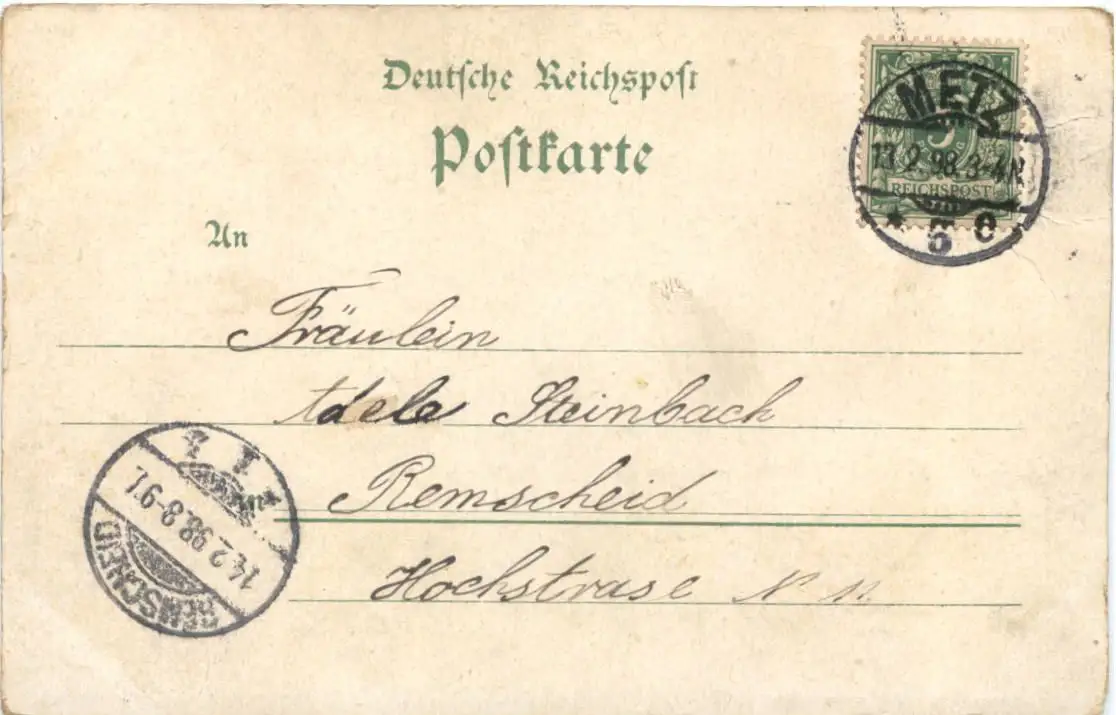 Deutsche Reichspost
Postkarte
METZ
13.2.98.3-4N
REICHSPOST
* 5 c
An
Fräulein
Adele Steinbach
Remscheid
Hochstrase N
14.2.98.8-9V.
REMSCHEID